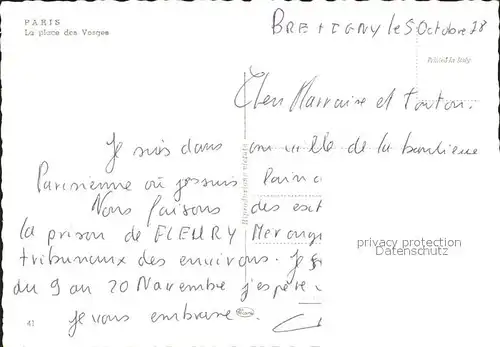 PARIS
La place des Vosges
BRETIGNY le 5 Octobre 78
Printed in Italy
Chers Marraine et tonton.
Je suis dans une ville de la banlieue
Parisienne où je suis
Nous faisons des
la prison de FLEURY Merong
tribunaux des environs. Je
du 9 au 20 Novembre j'espère
Je vous embrasse.
41
Riproduzione vietata
privacy protection
Datenschutz